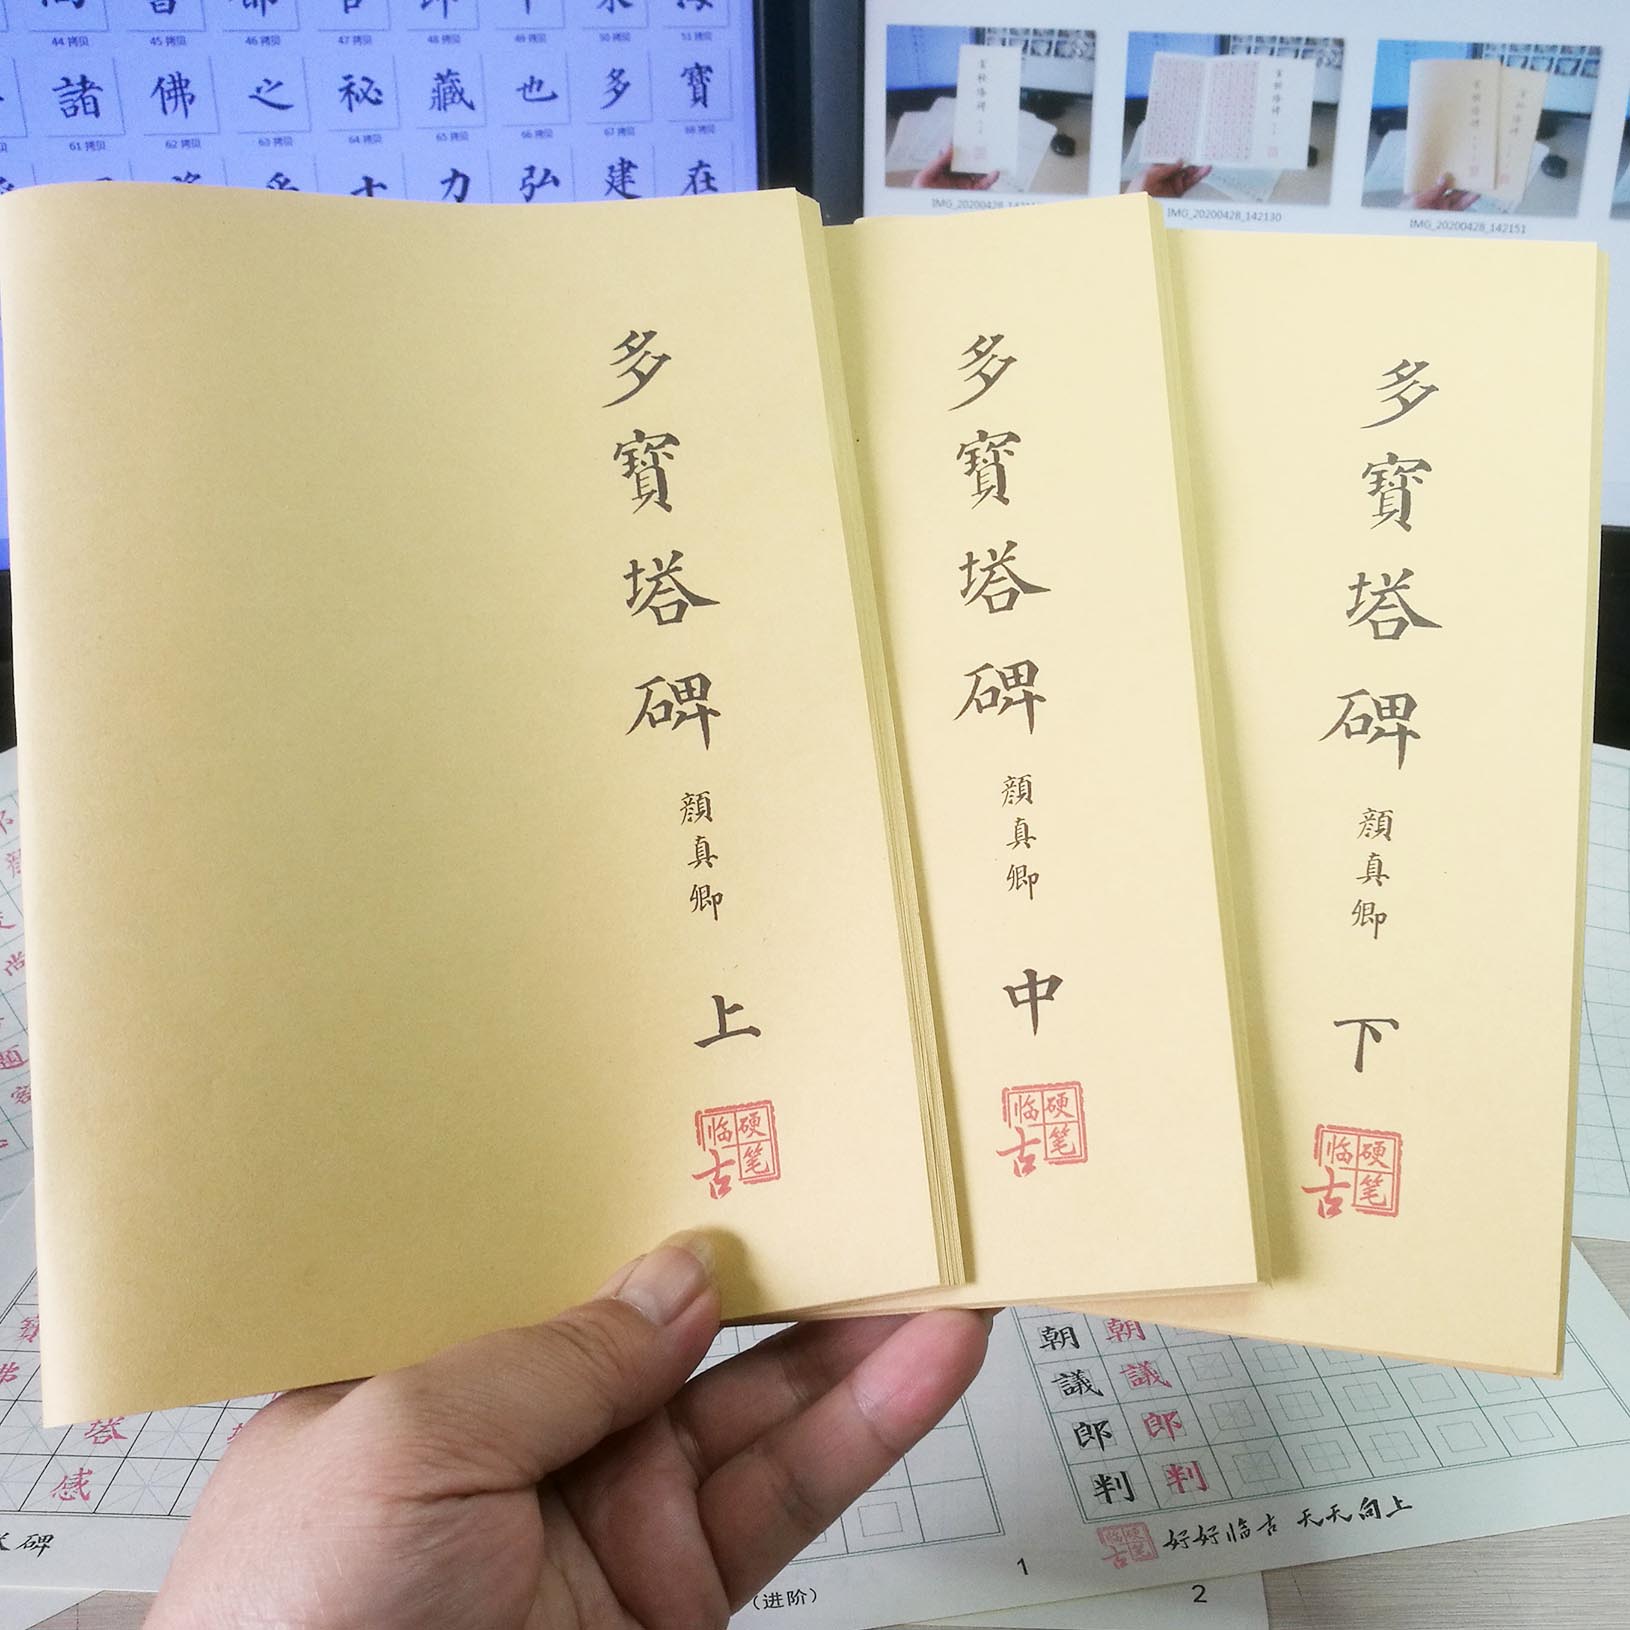 44 拷贝
45 拷贝
46 拷贝
47 拷贝
48 拷贝
49 拷贝
50 拷贝
51 拷贝
諸 佛 之 秘 藏 也 多 寶
61 拷贝
62 拷贝
63 拷贝
64 拷贝
65 拷贝
66 拷贝
67 拷贝
68 拷贝
力 弘 建 在
IMG_20200428_142130
IMG_20200428_142151
多寶塔碑
顔真卿
上
硬笔临古
多寶塔碑
顔真卿
中
硬笔临古
多寶塔碑
顔真卿
下
硬笔临古
塔
感
碑
(进阶)
1
朝 朝
議 議
郎 郎
判 判
硬笔临古
好好临古 天天向上
2